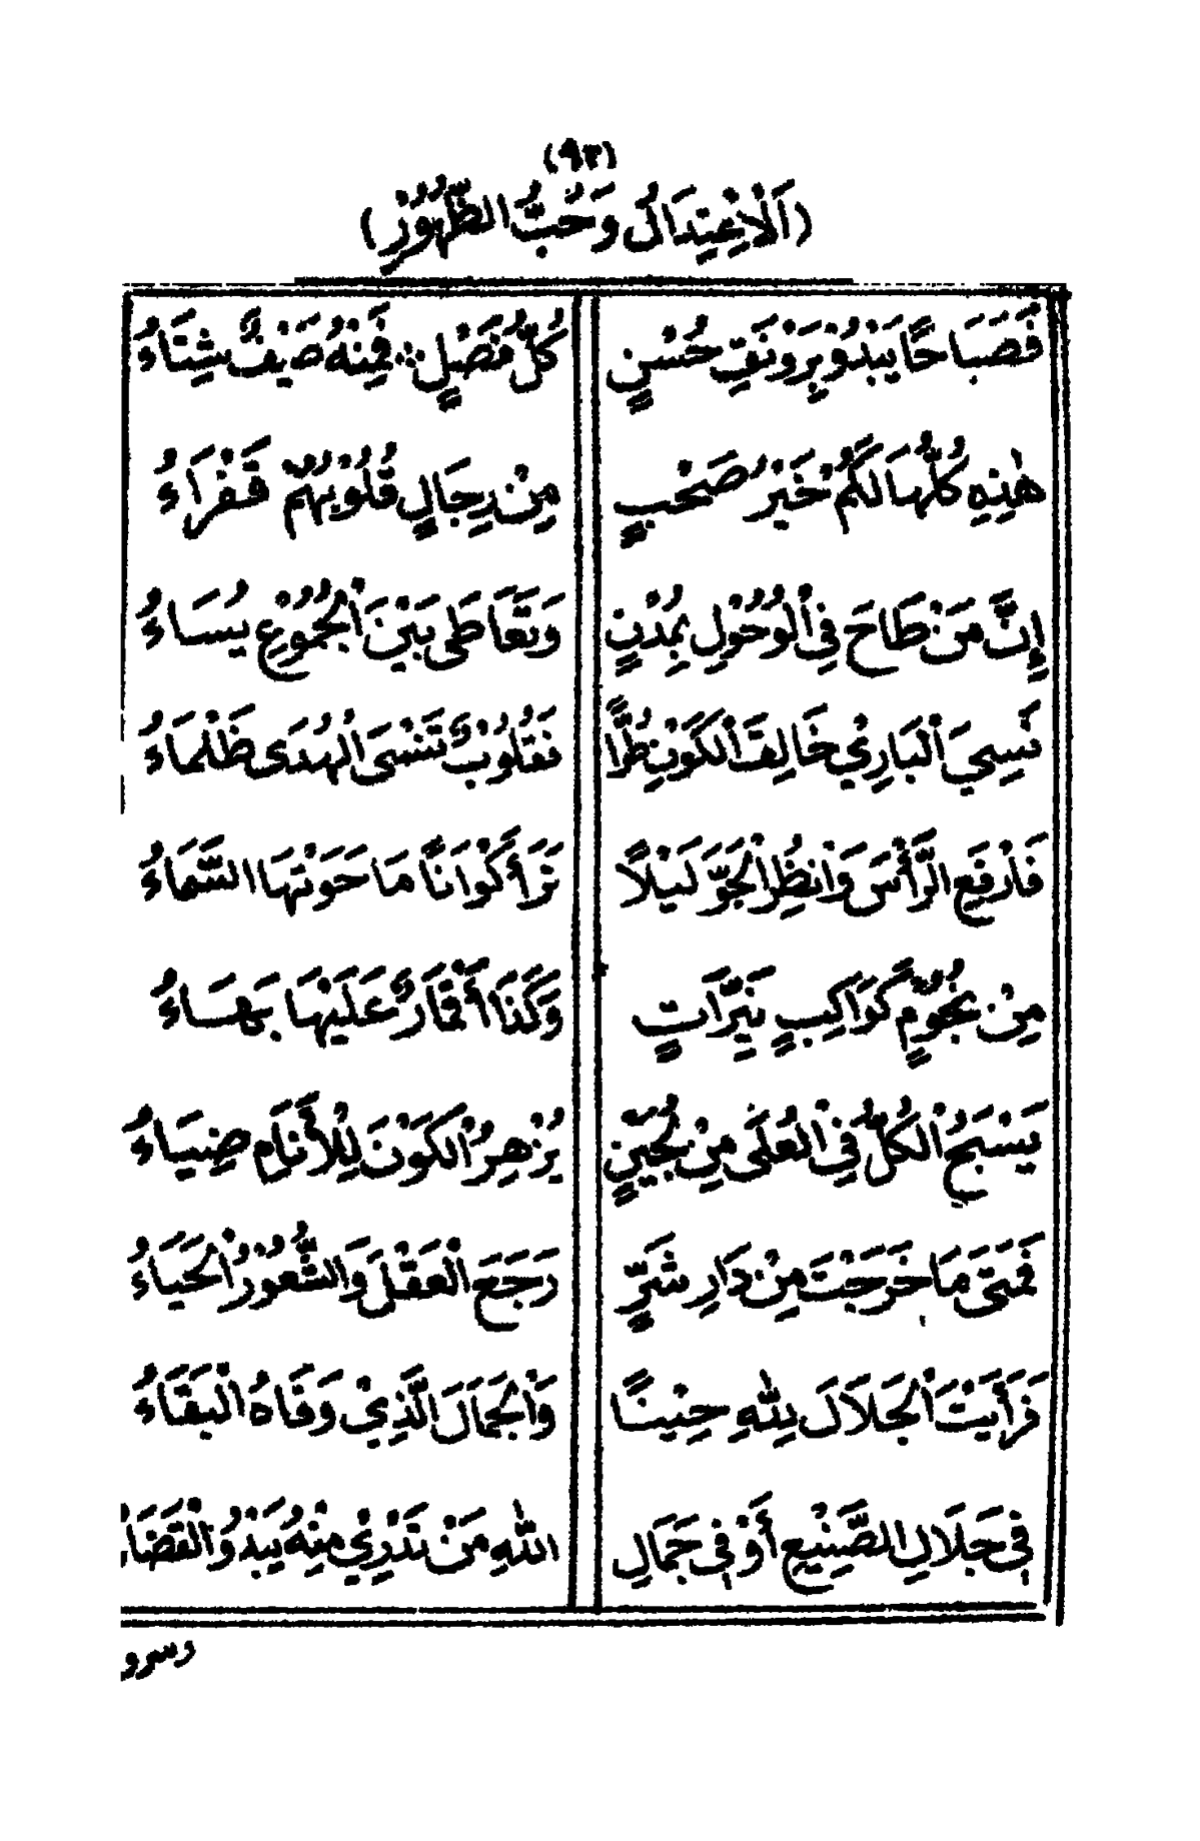 (٩٣)
(اَلْاِعْتِدَالُ وَحُبُّ الظُّهُوْرِ)
فَصَبَاحًا يَبْدُوْ بِرَوْنَقِ حُسْنٍ كُلُّ فَصْلٍ ∴ فَمِنْهُ صَيْفٌ شِتَاءُ
هٰذِهِ كُلُّهَا لَكُمْ خَيْرُ صَحْبٍ مِنْ رِجَالٍ قُلُوْبُهُمْ قَفْرَاءُ
إِنَّ مَنْ طَاحَ فِي الْوُحُوْلِ بِمُدْنٍ وَتَعَاطَى بَيْنَ الْجُمُوْعِ يُسَاءُ
نَسِيَ الْبَارِيْ خَالِقَ الْكَوْنِ طُرًّا فَقُلُوْبٌ تَنْسَى الْهُدَى ظَلْمَاءُ
فَارْفَعِ الرَّأْسَ وَانْظُرِ الْجَوَّ لَيْلًا تَرَ أَكْوَانًا مَا حَوَتْهَا السَّمَاءُ
مِنْ نُجُوْمٍ كَوَاكِبٍ نَيِّرَاتٍ وَكَذَا أَقْمَارٌ عَلَيْهَا بَهَاءُ
يَسْبَحُ الْكُلُّ فِي الْعُلَى مِنْ لُجَيْنٍ يُزْهِرُ الْكَوْنَ لِلْأَنَامِ ضِيَاءُ
فَمَتَى مَا خَرَجْتَ مِنْ دَارِ شَرٍّ رَجَعَ الْعَقْلَ وَالشُّعُوْرُ الْحَيَاءُ
فَرَأَيْتَ الْجَلَالَ لِلّٰهِ حِيْنًا وَالْجَمَالَ الَّذِيْ وَفَاهُ الْبَقَاءُ
فِي جَلَالِ الصَّنِيْعِ أَوْ فِي جَمَالِ اللّٰهِ مَنْ تَدْرِيْ مِنْهُ يَبْدُو الْقَضَاءُ